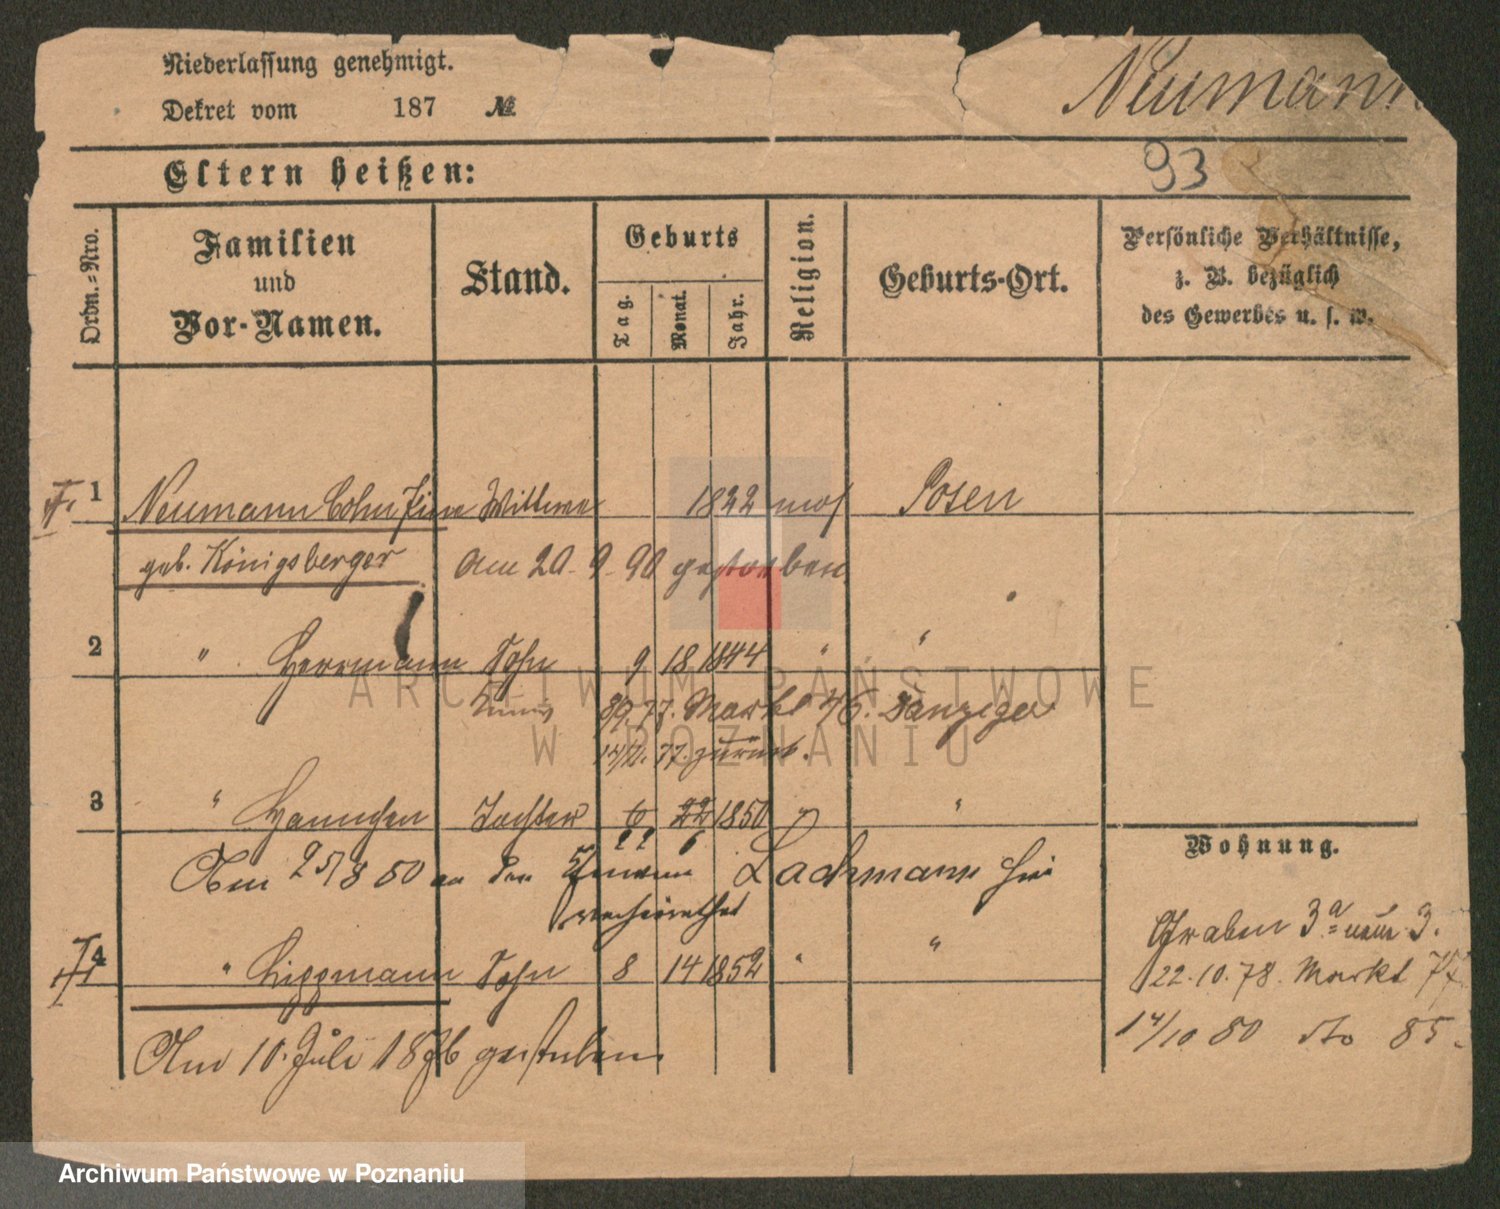 Niederlassung genehmigt.
Dekret vom 187 №
Neumann
Eltern heißen:
93
Ordn.-Nro.
Familien
und
Vor-Namen.
Stand.
Geburts
Tag.
Monat.
Jahr.
Religion.
Geburts-Ort.
Persönliche Verhältnisse,
z. B. bezüglich
des Gewerbes u. s. w.
1 Neumann Cohn Wittwe 1822 mos Posen
geb. Königsberger am 20. 9. 90 gestorben
2 " Herrmann Sohn 9 18 1844 " "
8/9. 77. Markt 46. Danziger
14/12. 77. zurück.
3 " Hannchen Tochter 6 22 1850 " "
22 6
Am 25/8 80 an den Lachmann hier
verheirathet
4 " Lippmann Sohn 8 14 1852 " "
Am 10. Juli 1876 gestorben.
Wohnung.
Graben 3a = neue 3.
22. 10. 78. Markt 77
14/10 80 dto 85.
ARCHIWUM PAŃSTWOWE
W POZNANIU
Archiwum Państwowe w Poznaniu